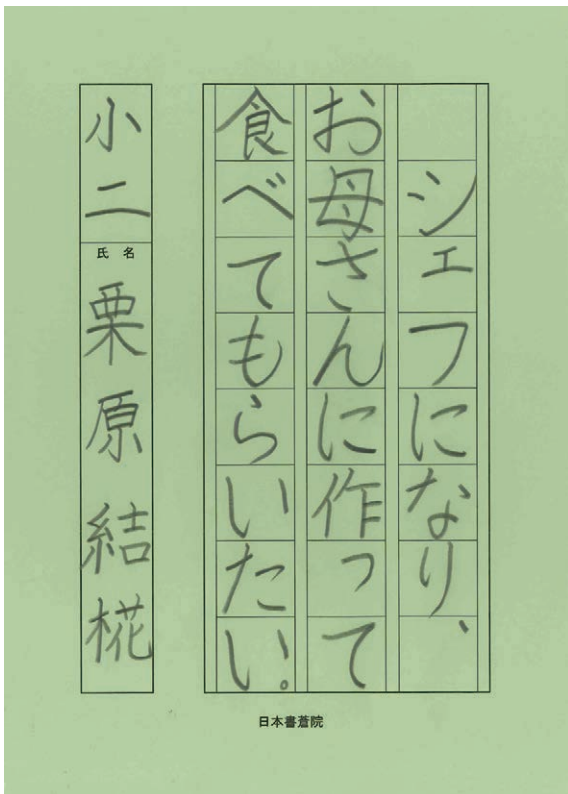 シェフになり、
お母さんに作って
食べてもらいたい。
小二
氏名
栗原結椛
日本書蒼院